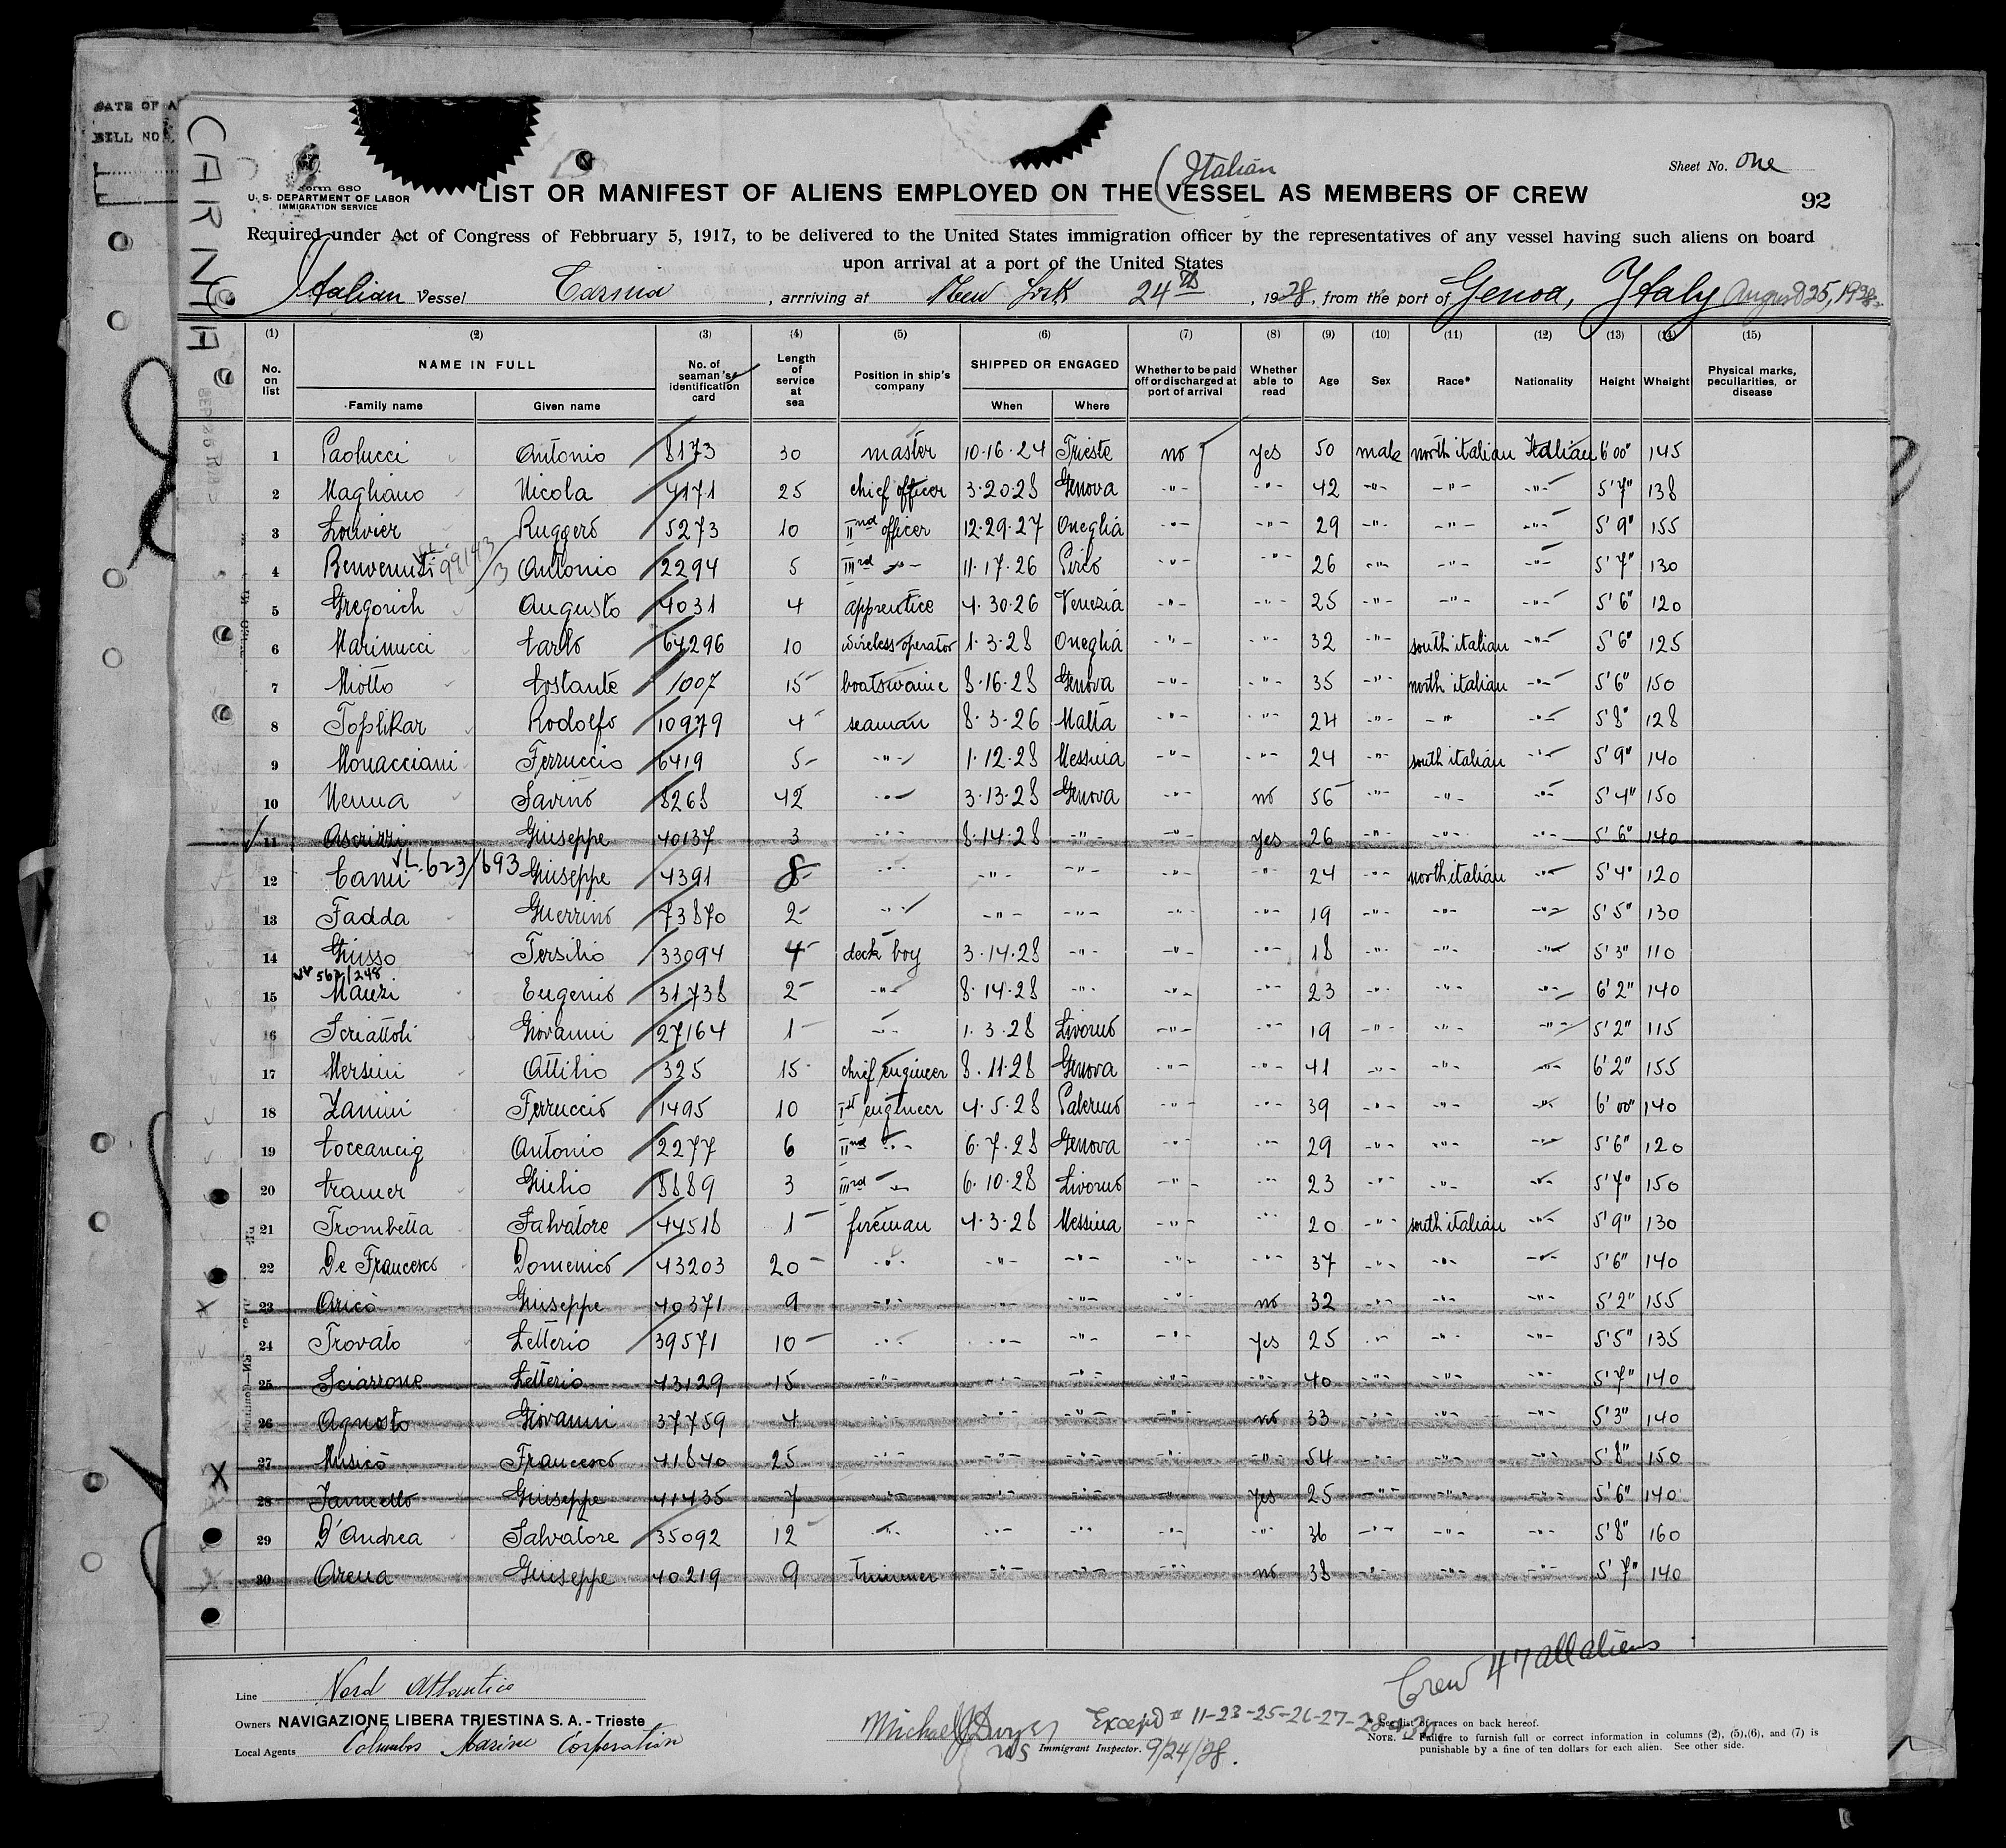 DATE OF A
BILL NO.
CARNIA
Form 680
U. S. DEPARTMENT OF LABOR
IMMIGRATION SERVICE
Sheet No. One
92
Italian
LIST OR MANIFEST OF ALIENS EMPLOYED ON THE VESSEL AS MEMBERS OF CREW
Required under Act of Congress of Febbruary 5, 1917, to be delivered to the United States immigration officer by the representatives of any vessel having such aliens on board
upon arrival at a port of the United States
Italian Vessel Carnia, arrriving at New York 24th, 1928, from the port of Genoa, Italy August 25, 1928
(1) (2) (3) (4) (5) (6) (7) (8) (9) (10) (11) (12) (13) (14) (15)
No. on list NAME IN FULL Family name Given name No. of seaman's identification card Length of service at sea Position in ship's company SHIPPED OR ENGAGED When Where Whether to be paid off or discharged at port of arrival Whether able to read Age Sex Race* Nationality Height Wheight Physical marks, peculiarities, or disease
1 Paolucci Antonio 8173 30 master 10-16-24 Trieste no yes 50 male north italian Italian 6'00" 145
2 Magliano Nicola 4171 25 chief officer 3-20-28 Genova -"- -"- 42 -"- -"- -"- 5'7" 138
3 Louvier Ruggero 5273 10 IInd officer 12-29-27 Oneglia -"- -"- 29 -"- -"- -"- 5'9" 155
4 Benvenuti 99143/3 Antonio 2294 5 IIIrd -"- 11-17-26 -"- -"- 26 -"- -"- -"- 5'7" 130
5 Gregorich Augusto 4031 4 apprentice 4-30-26 Venezia -"- -"- 25 -"- -"- -"- 5'6" 120
6 Marinucci Carlo 64296 10 wireless operator 1-3-28 Oneglia -"- -"- 32 -"- south italian -"- 5'6" 125
7 Miotto Costante 1007 15 boatswaine 8-16-28 Genova -"- -"- 35 -"- north italian -"- 5'6" 150
8 Toplikar Rodolfo 10979 4 seaman 8-3-26 Malta -"- -"- 24 -"- -"- -"- 5'8" 128
9 Monacciani Ferruccio 6419 5 -"- 1-12-28 Messina -"- -"- 24 -"- south italian -"- 5'9" 140
10 Nenna Savino 8268 42 -"- 3-13-28 Genova -"- no 56 -"- -"- -"- 5'4" 150
11 Ascrizzi Giuseppe 40137 3 -"- 8-14-28 -"- -"- yes 26 -"- -"- -"- 5'6" 140
12 Canu VL 623/693 Giuseppe 4391 8 -"- -"- -"- -"- -"- 24 -"- north italian -"- 5'4" 120
13 Fadda Guerrino 73870 2 -"- -"- -"- -"- -"- 19 -"- -"- -"- 5'5" 130
14 Giusso Tersilio 33094 4 deck boy 3-14-28 -"- -"- -"- 18 -"- -"- -"- 5'3" 110
15 Mauzi Eugenio 31738 2 -"- 8-14-28 -"- -"- -"- 23 -"- -"- -"- 6'2" 140
16 Scriattoli Giovanni 27164 1 -"- 1-3-28 Livorno -"- -"- 19 -"- -"- -"- 5'2" 115
17 Mersini Attilio 325 15 chief engineer 8-11-28 Genova -"- -"- 41 -"- -"- -"- 6'2" 155
18 Zanini Ferruccio 1495 10 Ist engineer 4-5-28 Palermo -"- -"- 39 -"- -"- -"- 6'00" 140
19 Coccancig Antonio 2277 6 IInd -"- 6-7-28 Genova -"- -"- 29 -"- -"- -"- 5'6" 120
20 Cramer Giulio 8889 3 IIIrd -"- 6-10-28 Livorno -"- -"- 23 -"- -"- -"- 5'7" 150
21 Trombetta Salvatore 44518 1 fireman 4-3-28 Messina -"- -"- 20 -"- south italian -"- 5'9" 130
22 De Francesco Domenico 43203 20 -"- -"- -"- -"- -"- 37 -"- -"- -"- 5'6" 140
23 Aricò Giuseppe 40371 9 -"- -"- -"- -"- no 32 -"- -"- -"- 5'2" 155
24 Trovato Letterio 39571 10 -"- -"- -"- -"- yes 25 -"- -"- -"- 5'5" 135
25 Sciarrone Letterio 43129 15 -"- -"- -"- -"- -"- 40 -"- -"- -"- 5'7" 140
26 Agnosto Giovanni 37759 4 -"- -"- -"- -"- no 33 -"- -"- -"- 5'3" 140
27 Musicò Francesco 41840 25 -"- -"- -"- -"- -"- 54 -"- -"- -"- 5'8" 150
28 Iannello Giuseppe 41435 7 -"- -"- -"- -"- yes 25 -"- -"- -"- 5'6" 140
29 D'Andrea Salvatore 35092 12 -"- -"- -"- -"- -"- 36 -"- -"- -"- 5'8" 160
30 Arena Giuseppe 40219 9 trimmer -"- -"- -"- no 38 -"- -"- -"- 5'7" 140
Crew 47 all aliens
Line Nord Atlantico
Owners NAVIGAZIONE LIBERA TRIESTINA S. A. - Trieste
Local Agents Columbus Marine Corporation
Michael J Dwyer
US Immigrant Inspector. 9/24/28.
Except # 11-23-25-26-27-28-30
* See list of races on back hereof.
NOTE. — Failure to furnish full or correct information in columns (2), (5),(6), and (7) is
punishable by a fine of ten dollars for each alien. See other side.